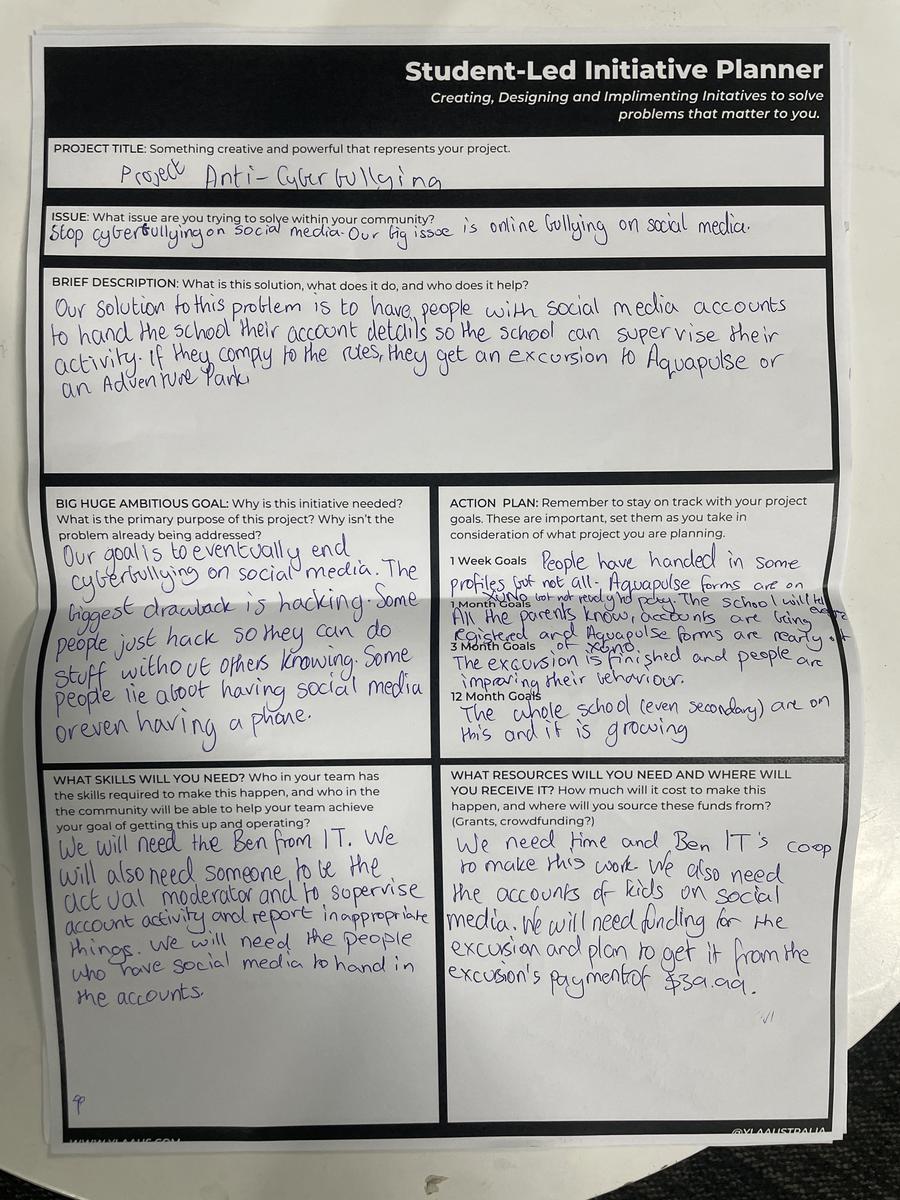 Student-Led Initiative Planner
Creating, Designing and Implimenting Initatives to solve
problems that matter to you.
PROJECT TITLE: Something creative and powerful that represents your project.
Project Anti-Cyberbullying
ISSUE: What issue are you trying to solve within your community?
Stop cyberbullying on social media. Our big issue is online bullying on social media.
BRIEF DESCRIPTION: What is this solution, what does it do, and who does it help?
Our solution to this problem is to have people with social media accounts
to hand the school their account details so the school can supervise their
activity. If they compy to the rules, they get an excursion to Aquapulse or
an Adventure Park
BIG HUGE AMBITIOUS GOAL: Why is this initiative needed?
What is the primary purpose of this project? Why isn't the
problem already being addressed?
Our goal is to eventually end
cyberbullying on social media. The
biggest drawback is hacking. Some
people just hack so they can do
stuff without others knowing. Some
people lie about having social media
or even having a phone.
ACTION PLAN: Remember to stay on track with your project
goals. These are important, set them as you take in
consideration of what project you are planning.
1 Week Goals People have handed in some
profiles but not all. Aquapulse forms are on
XUNO but not ready to pay. The school will tell
1 Month Goals
All the parents know, accounts are being
registered and Aquapulse forms are nearly
of XUNO.
3 Month Goals
The excursion is finished and people are
improving their behaviour.
12 Month Goals
The whole school (even secondary) are on
this and it is growing
WHAT SKILLS WILL YOU NEED? Who in your team has
the skills required to make this happen, and who in the
the community will be able to help your team achieve
your goal of getting this up and operating?
We will need the Ben from IT. We
will also need someone to be the
actual moderator and to supervise
account activity and report inappropriate
things. We will need the people
who have social media to hand in
the accounts.
WHAT RESOURCES WILL YOU NEED AND WHERE WILL
YOU RECEIVE IT? How much will it cost to make this
happen, and where will you source these funds from?
(Grants, crowdfunding?)
We need time and Ben IT's coop
to make this work. We also need
the accounts of kids on social
media. We will need funding for the
excursion and plan to get it from the
excusion's payment of $39.99.
WWW.YLAAUS.COM
@YLAAUSTRALIA